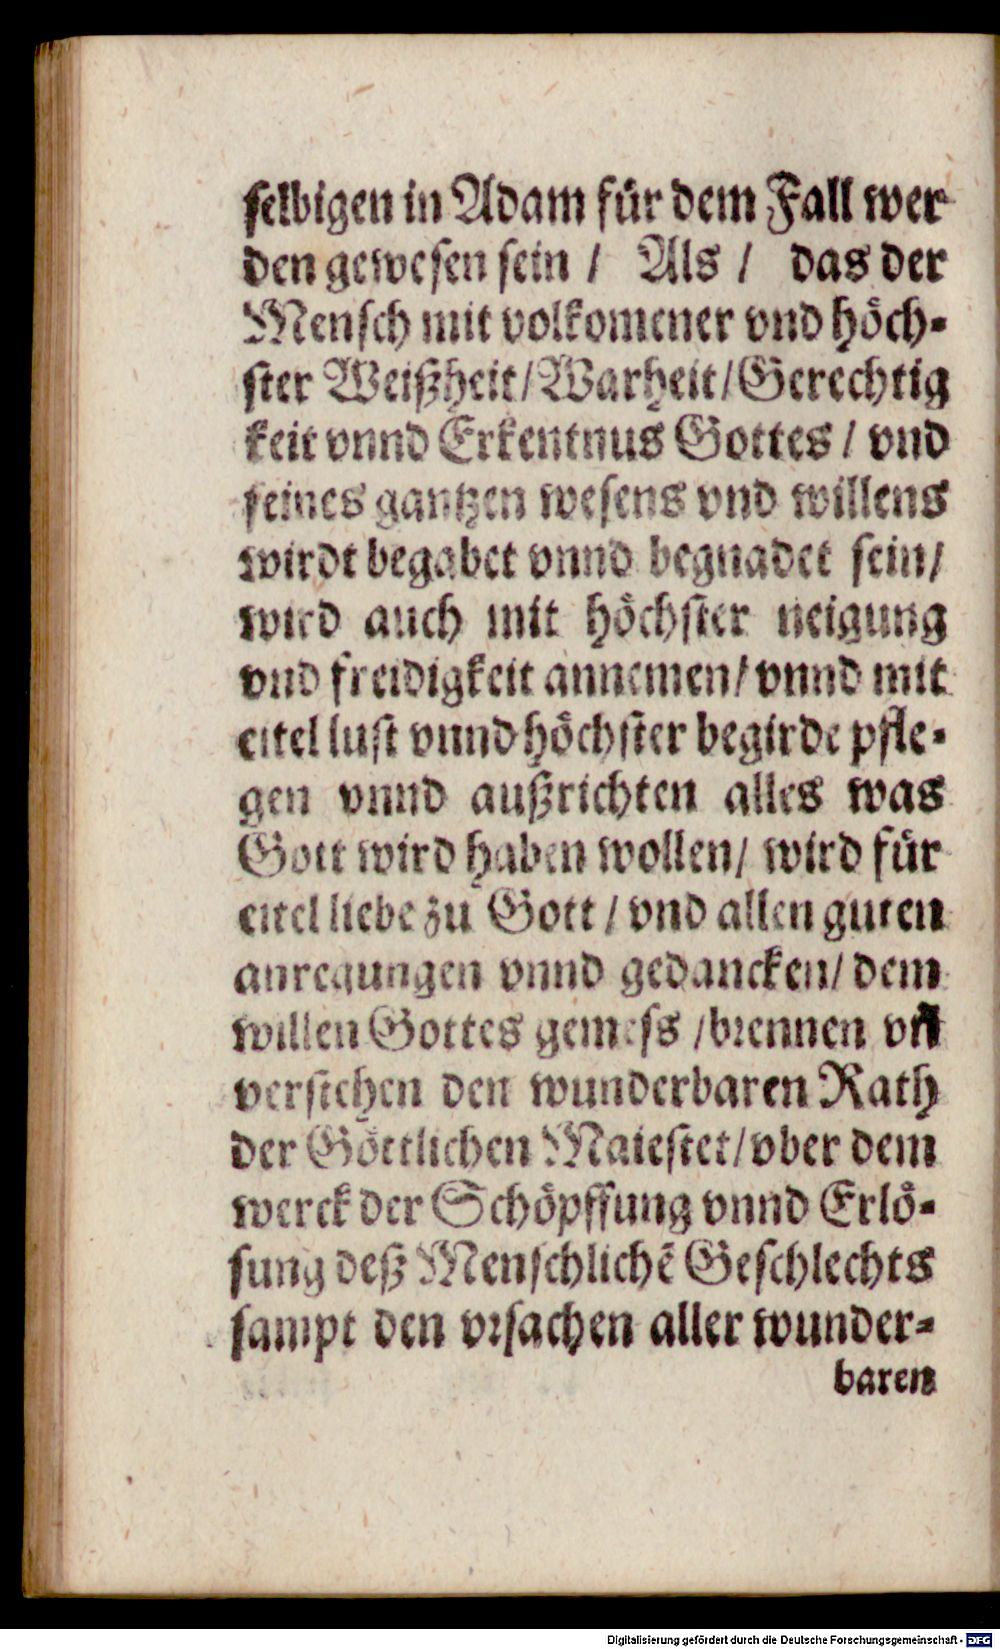 selbigen in Adam für dem Fall wer
den gewesen sein / Als / das der
Mensch mit volkomener vnd höch-
ster Weißheit/Warheit/Gerechtig
keit vnnd Erkentnus Gottes / vnd
seines gantzen wesens vnd willens
wirdt begabet vnnd begnadet sein/
wird auch mit höchster neigung
vnd freidigkeit annemen/vnnd mit
eitel lust vnnd höchster begirde pfle-
gen vnnd außrichten alles was
Gott wird haben wollen/ wird für
eitel liebe zu Gott / vnd allen guten
anregungen vnnd gedancken/ dem
willen Gottes gemess /brennen vñ
verstehen den wunderbaren Rath
der Göttlichen Maiestet/vber dem
werck der Schöpffung vnnd Erlö-
sung deß Menschlichẽ Geschlechts
sampt den vrsachen aller wunder-
baren
Digitalisierung gefördert durch die Deutsche Forschungsgemeinschaft - DFG